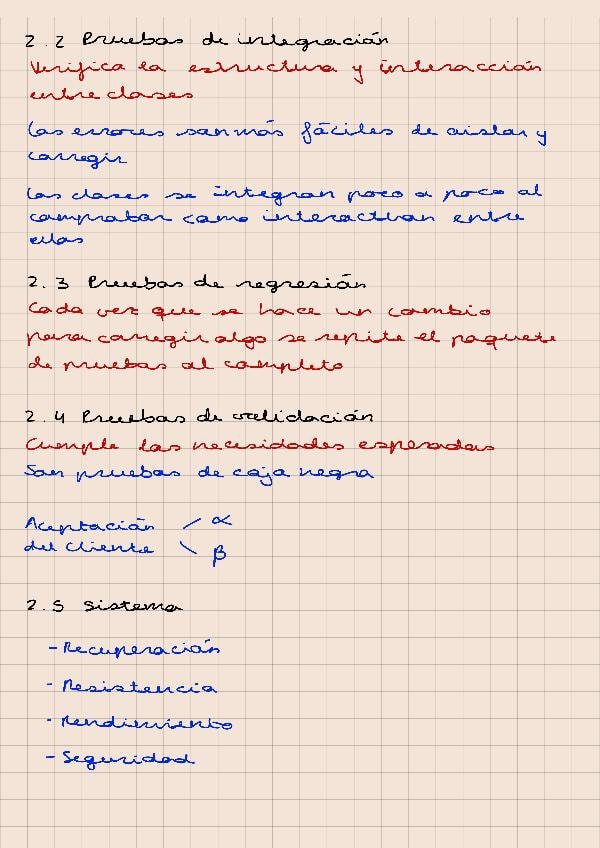 2.2 Pruebas de integración
Verifica la estructura y interacción
entre clases
Los errores son más fáciles de aislar y
corregir
Las clases se integran poco a poco al
comprobar como interactúan entre
ellas
2.3 Pruebas de regresión
Cada vez que se hace un cambio
para corregir algo se repite el paquete
de pruebas al completo
2.4 Pruebas de validación
Cumple las necesidades esperadas
Son pruebas de caja negra
Aceptación / α
del cliente \ β
2.5 Sistema
- Recuperación
- Resistencia
- Rendimiento
- Seguridad